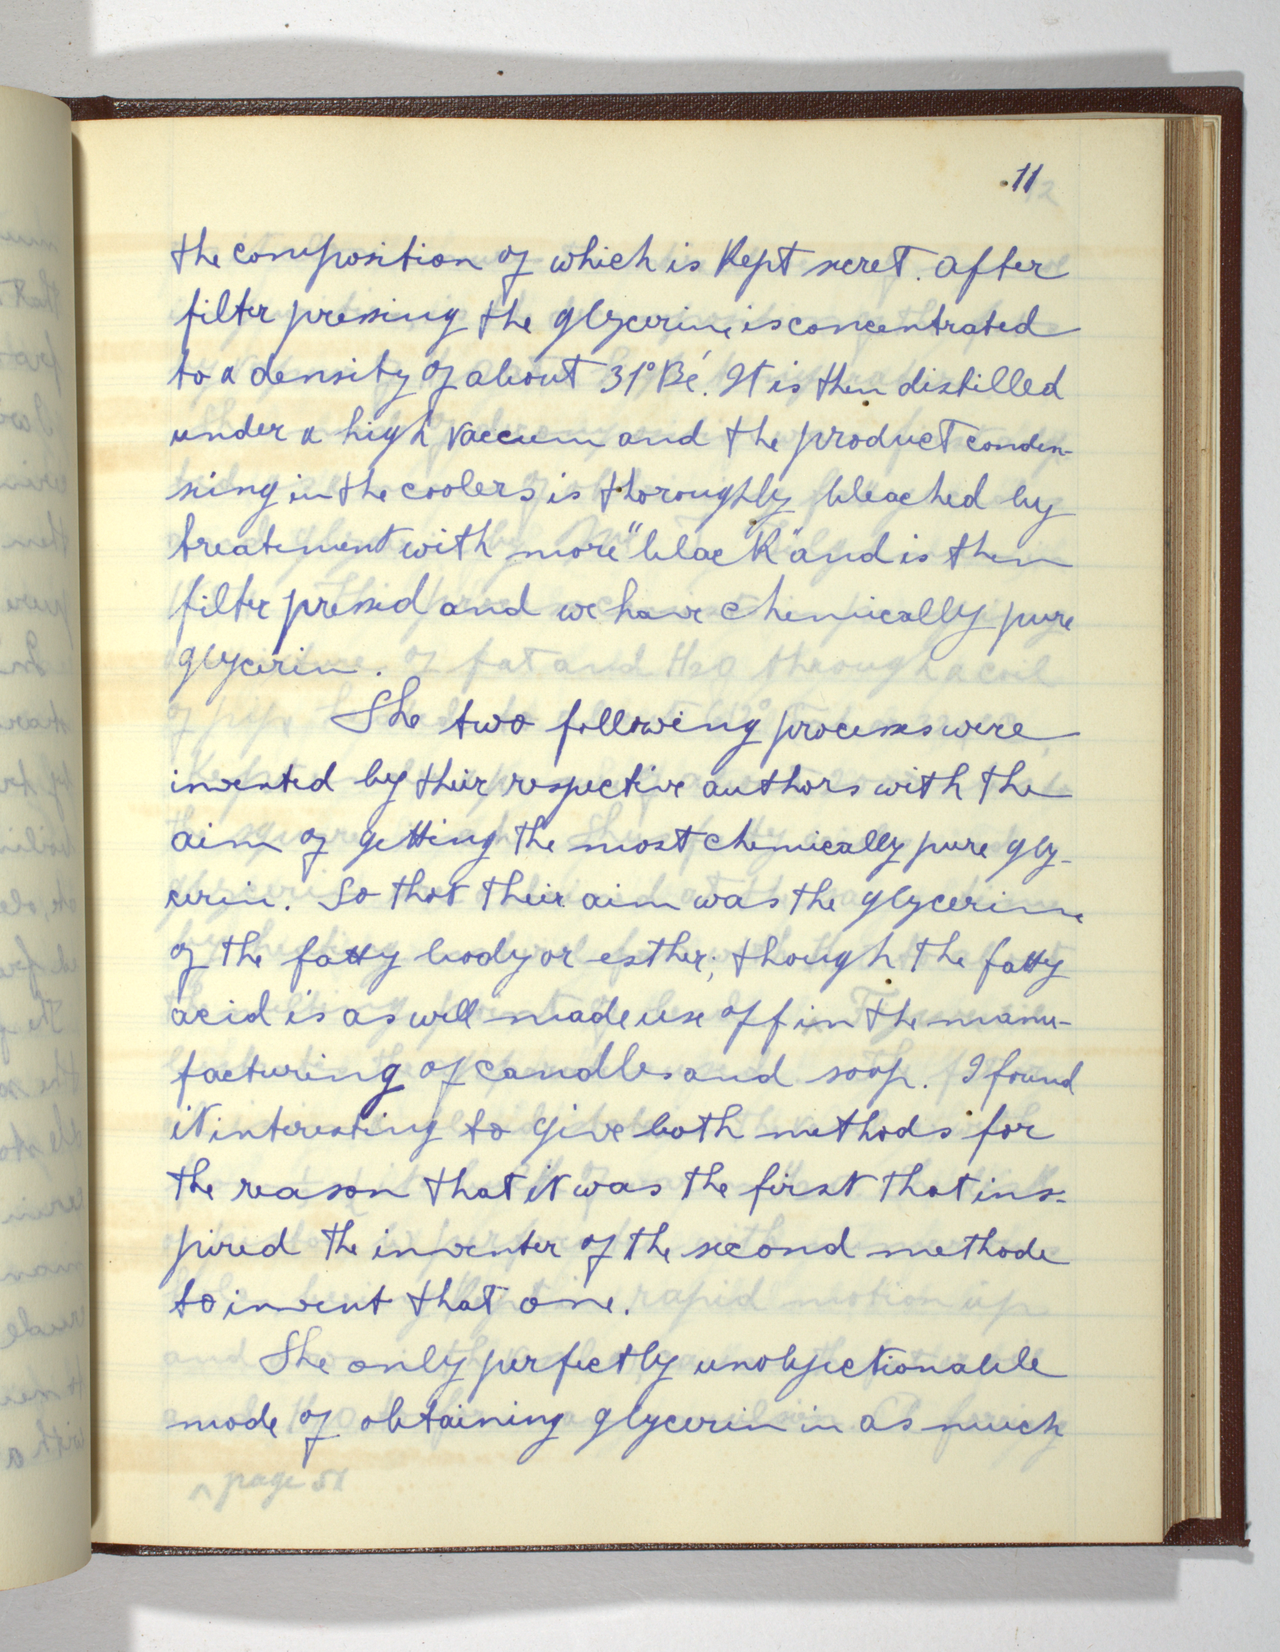 11
the composition of which is kept secret. After
filter pressing the glycerine is concentrated
to a density of about 31° Bé. It is then distilled
under a high vaccum and the product conden-
sing in the coolers is thoroughly bleached by
treatement with more "black" and is then
filter pressed and we have chemically pure
glycerin.
The two following processes were
invented by their respective authors with the
aim of getting the most chemically pure gly-
cerin. So that their aim was the glycerine
of the fatty body or esther; though the fatty
acid is as well made use off in the manu-
facturing of candles and soap. I found
it interesting to give both methods for
the reason that it was the first that ins-
pired the inventer of the second methode
to invent that one.
The only perfectly unobjectionable
mode of obtaining glycerin in as much